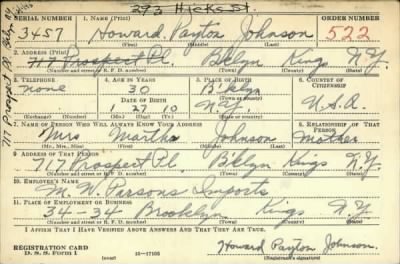 293 Hicks St.
SERIAL NUMBER 1. NAME (Print) ORDER NUMBER
3457 Howard Payton Johnson 522
(First) (Middle) (Last)
2. ADDRESS (Print)
717 Prospect Pl. Bklyn Kings N.Y.
(Number and street or R. F. D. number) (Town) (County) (State)
3. TELEPHONE 4. AGE IN YEARS 5. PLACE OF BIRTH 6. COUNTRY OF CITIZENSHIP
none 30 B'klyn
DATE OF BIRTH (Town or county)
27 10 N.Y. U.S.A.
(Exchange) (Number) (Mo.) (Day) (Yr.) (State or country)
7. NAME OF PERSON WHO WILL ALWAYS KNOW YOUR ADDRESS 8. RELATIONSHIP OF THAT PERSON
Mrs Martha Johnson Mother
(Mr., Mrs., Miss) (First) (Middle) (Last)
9. ADDRESS OF THAT PERSON
717 Prospect Pl. B'klyn Kings N.Y.
(Number and street or R. F. D. number) (Town) (County) (State)
10. EMPLOYER'S NAME
M. W. Parsons Imports
11. PLACE OF EMPLOYMENT OR BUSINESS
34-34 Brooklyn Kings N.Y.
(Number and street or R. F. D. number) (Town) (County) (State)
I AFFIRM THAT I HAVE VERIFIED ABOVE ANSWERS AND THAT THEY ARE TRUE.
REGISTRATION CARD
D. S. S. Form 1 (over) 16-17105
Howard Payton Johnson.
(Registrant's signature)
717 Prospect Pl. Bklyn N.Y.